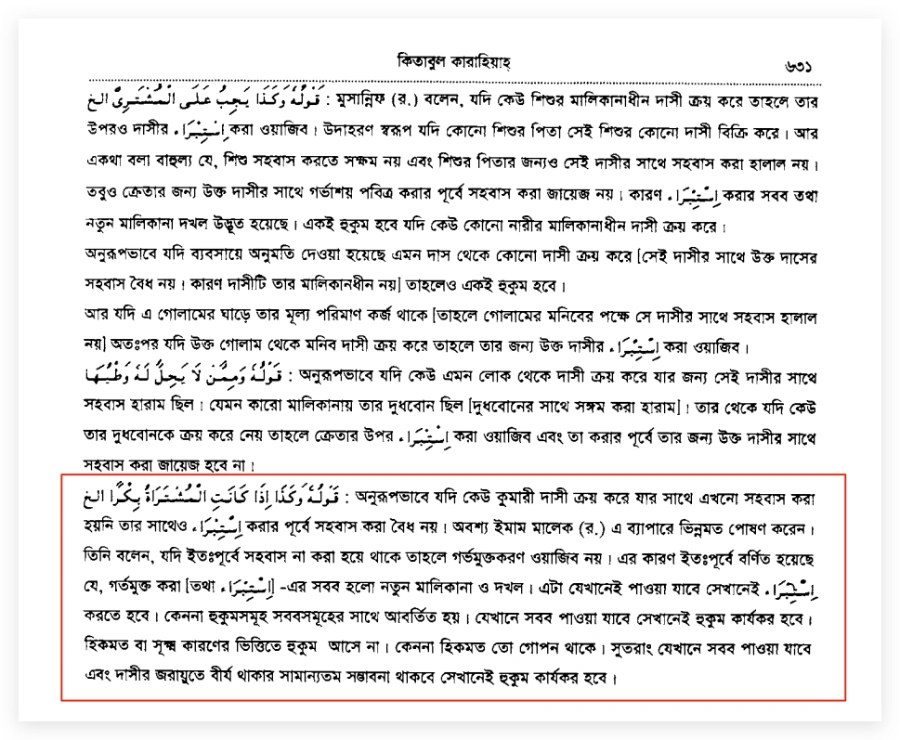 কিতাবুল কারাহিয়াহ্ ৬৩১
قَوْلُهُ وَكَذَا يَجِبُ عَلَى الْمُشْتَرِىْ الخ : মুসান্নিফ (র.) বলেন, যদি কেউ শিশুর মালিকানাধীন দাসী ক্রয় করে তাহলে তার
উপরও দাসীর إِسْتِبْرَاء করা ওয়াজিব। উদাহরণ স্বরূপ যদি কোনো শিশুর পিতা সেই শিশুর কোনো দাসী বিক্রি করে। আর
একথা বলা বাহুল্য যে, শিশু সহবাস করতে সক্ষম নয় এবং শিশুর পিতার জন্যও সেই দাসীর সাথে সহবাস করা হালাল নয়।
তবুও ক্রেতার জন্য উক্ত দাসীর সাথে গর্ভাশয় পবিত্র করার পূর্বে সহবাস করা জায়েজ নয়। কারণ إِسْتِبْرَاء করার সবব তথা
নতুন মালিকানা দখল উদ্ভূত হয়েছে। একই হুকুম হবে যদি কেউ কোনো নারীর মালিকানাধীন দাসী ক্রয় করে।
অনুরূপভাবে যদি ব্যবসায়ে অনুমতি দেওয়া হয়েছে এমন দাস থেকে কোনো দাসী ক্রয় করে [সেই দাসীর সাথে উক্ত দাসের
সহবাস বৈধ নয়। কারণ দাসীটি তার মালিকানধীন নয়] তাহলেও একই হুকুম হবে।
আর যদি এ গোলামের ঘাড়ে তার মূল্য পরিমাণ কর্জ থাকে [তাহলে গোলামের মনিবের পক্ষে সে দাসীর সাথে সহবাস হালাল
নয়] অতঃপর যদি উক্ত গোলাম থেকে মনিব দাসী ক্রয় করে তাহলে তার জন্য উক্ত দাসীর إِسْتِبْرَاء করা ওয়াজিব।
قَوْلُهُ وَمِمَّنْ لَا يَحِلُّ لَهُ وَطْئُهَا : অনুরূপভাবে যদি কেউ এমন লোক থেকে দাসী ক্রয় করে যার জন্য সেই দাসীর সাথে
সহবাস হারাম ছিল। যেমন কারো মালিকানায় তার দুধবোন ছিল [দুধবোনের সাথে সঙ্গম করা হারাম]। তার থেকে যদি কেউ
তার দুধবোনকে ক্রয় করে নেয় তাহলে ক্রেতার উপর إِسْتِبْرَاء করা ওয়াজিব এবং তা করার পূর্বে তার জন্য উক্ত দাসীর সাথে
সহবাস করা জায়েজ হবে না।
قَوْلُهُ وَكَذَا إِذَا كَانَتِ الْمُشْتَرَاةُ بِكْرًا الخ : অনুরূপভাবে যদি কেউ কুমারী দাসী ক্রয় করে যার সাথে এখনো সহবাস করা
হয়নি তার সাথেও إِسْتِبْرَاء করার পূর্বে সহবাস করা বৈধ নয়। অবশ্য ইমাম মালেক (র.) এ ব্যাপারে ভিন্নমত পোষণ করেন।
তিনি বলেন, যদি ইতঃপূর্বে সহবাস না করা হয়ে থাকে তাহলে গর্ভমুক্তকরণ ওয়াজিব নয়। এর কারণ ইতঃপূর্বে বর্ণিত হয়েছে
যে, গর্তমুক্ত করা [তথা إِسْتِبْرَاء] -এর সবব হলো নতুন মালিকানা ও দখল। এটা যেখানেই পাওয়া যাবে সেখানেই إِسْتِبْرَاء
করতে হবে। কেননা হুকুমসমূহ সববসমূহের সাথে আবর্তিত হয়। যেখানে সবব পাওয়া যাবে সেখানেই হুকুম কার্যকর হবে।
হিকমত বা সূক্ষ্ম কারণের ভিত্তিতে হুকুম আসে না। কেননা হিকমত তো গোপন থাকে। সুতরাং যেখানে সবব পাওয়া যাবে
এবং দাসীর জরায়ুতে বীর্য থাকার সামান্যতম সম্ভাবনা থাকবে সেখানেই হুকুম কার্যকর হবে।